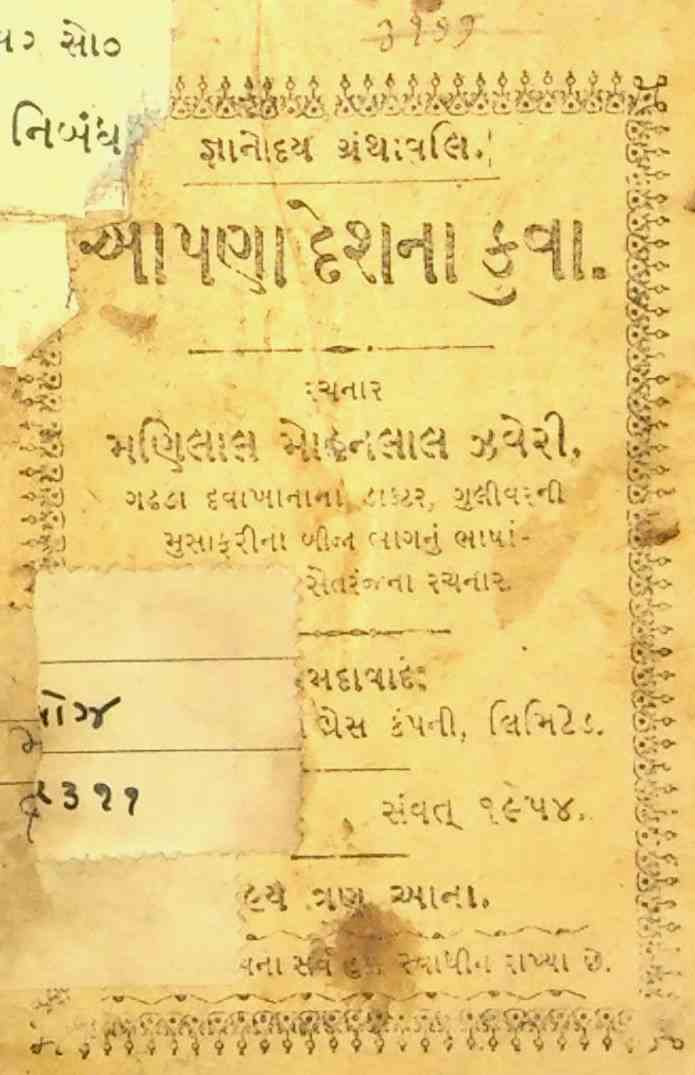 વગ સો૦
૩૧૭૭
નિબંધ
જ્ઞાનોદય ગ્રંથાવલિ.
આપણા દેશના કુવા.
રચનાર
મણિલાલ મોહનલાલ ઝવેરી,
ગઢડા દવાખાનાના ડાક્ટર, ગુલીવરની
મુસાફરીના બીજા ભાગનું ભાષાં-
સેતરંજના રચનાર.
મદાવાદ:
પ્રેસ કંપની, લિમિટેડ.
સંવત્ ૧૯૫૪.
ત્રણ આના.
સર્વ હક સ્વાધીન રાખ્યા છે.